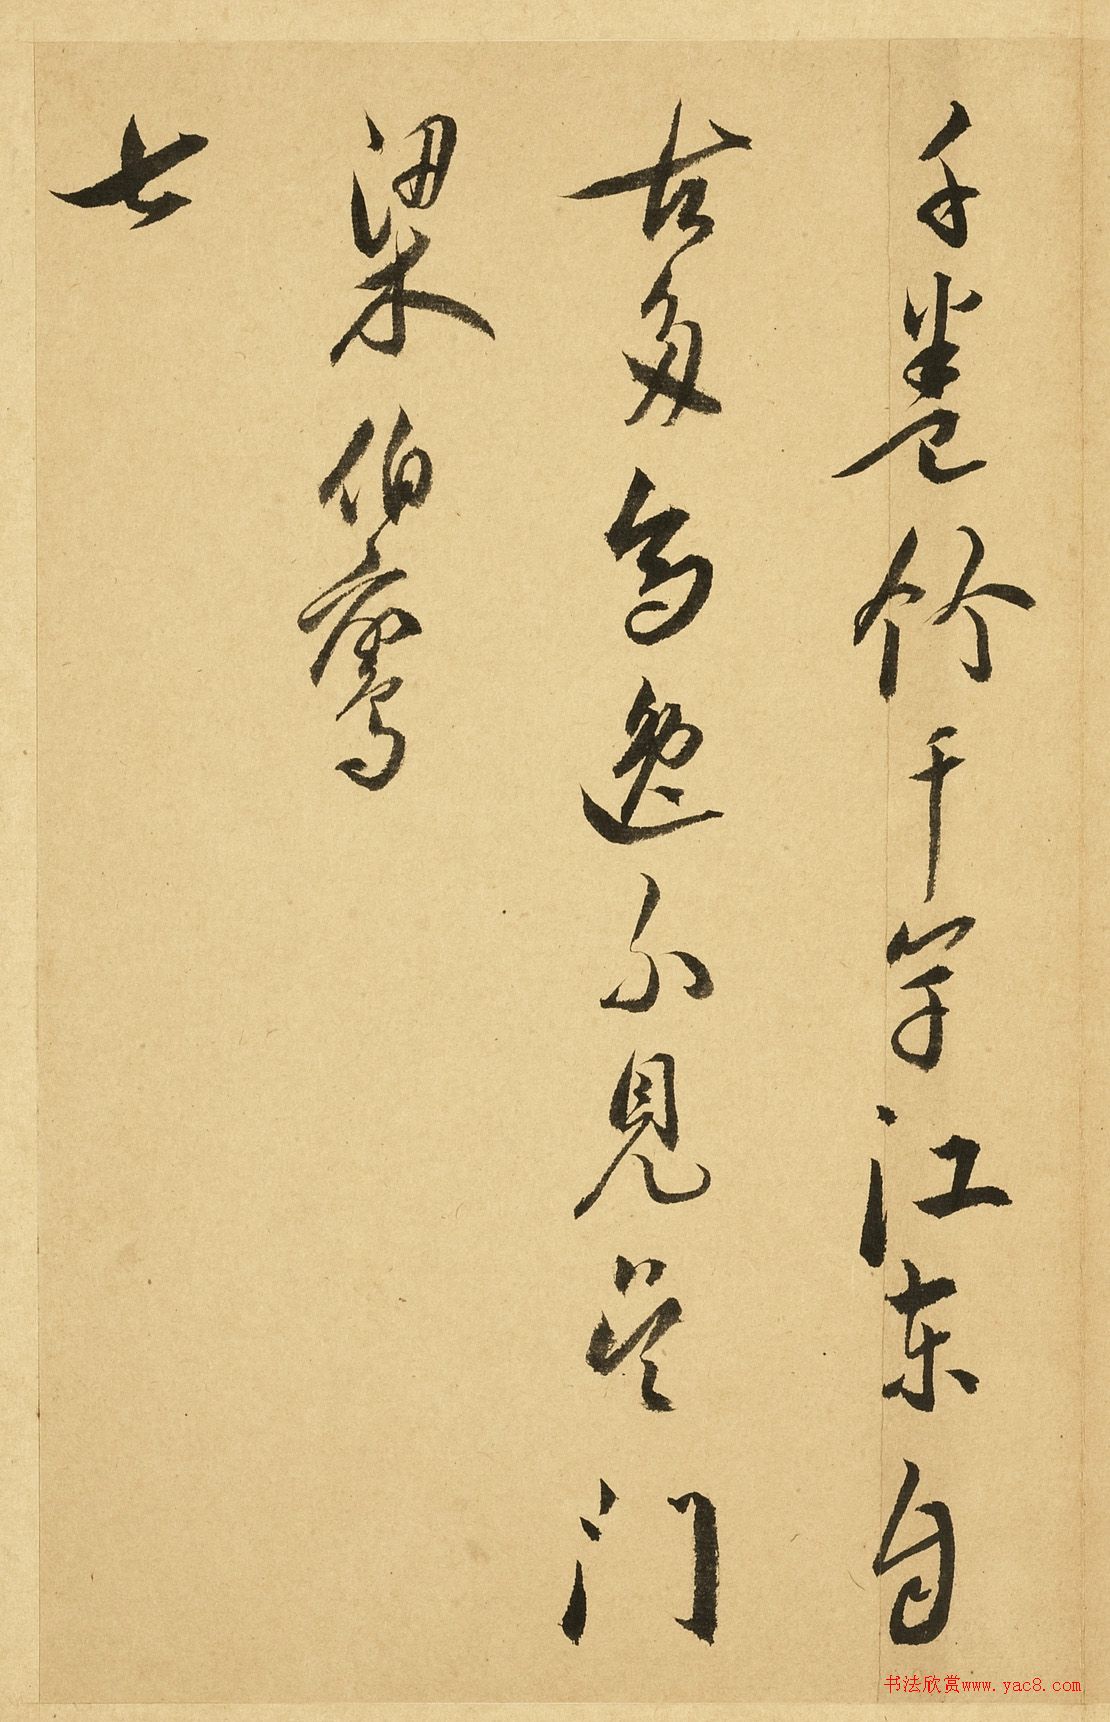 千卷竹千竿江東自
古多高逸不見吳門
梁伯鸞
七
书法欣赏www.yac8.com